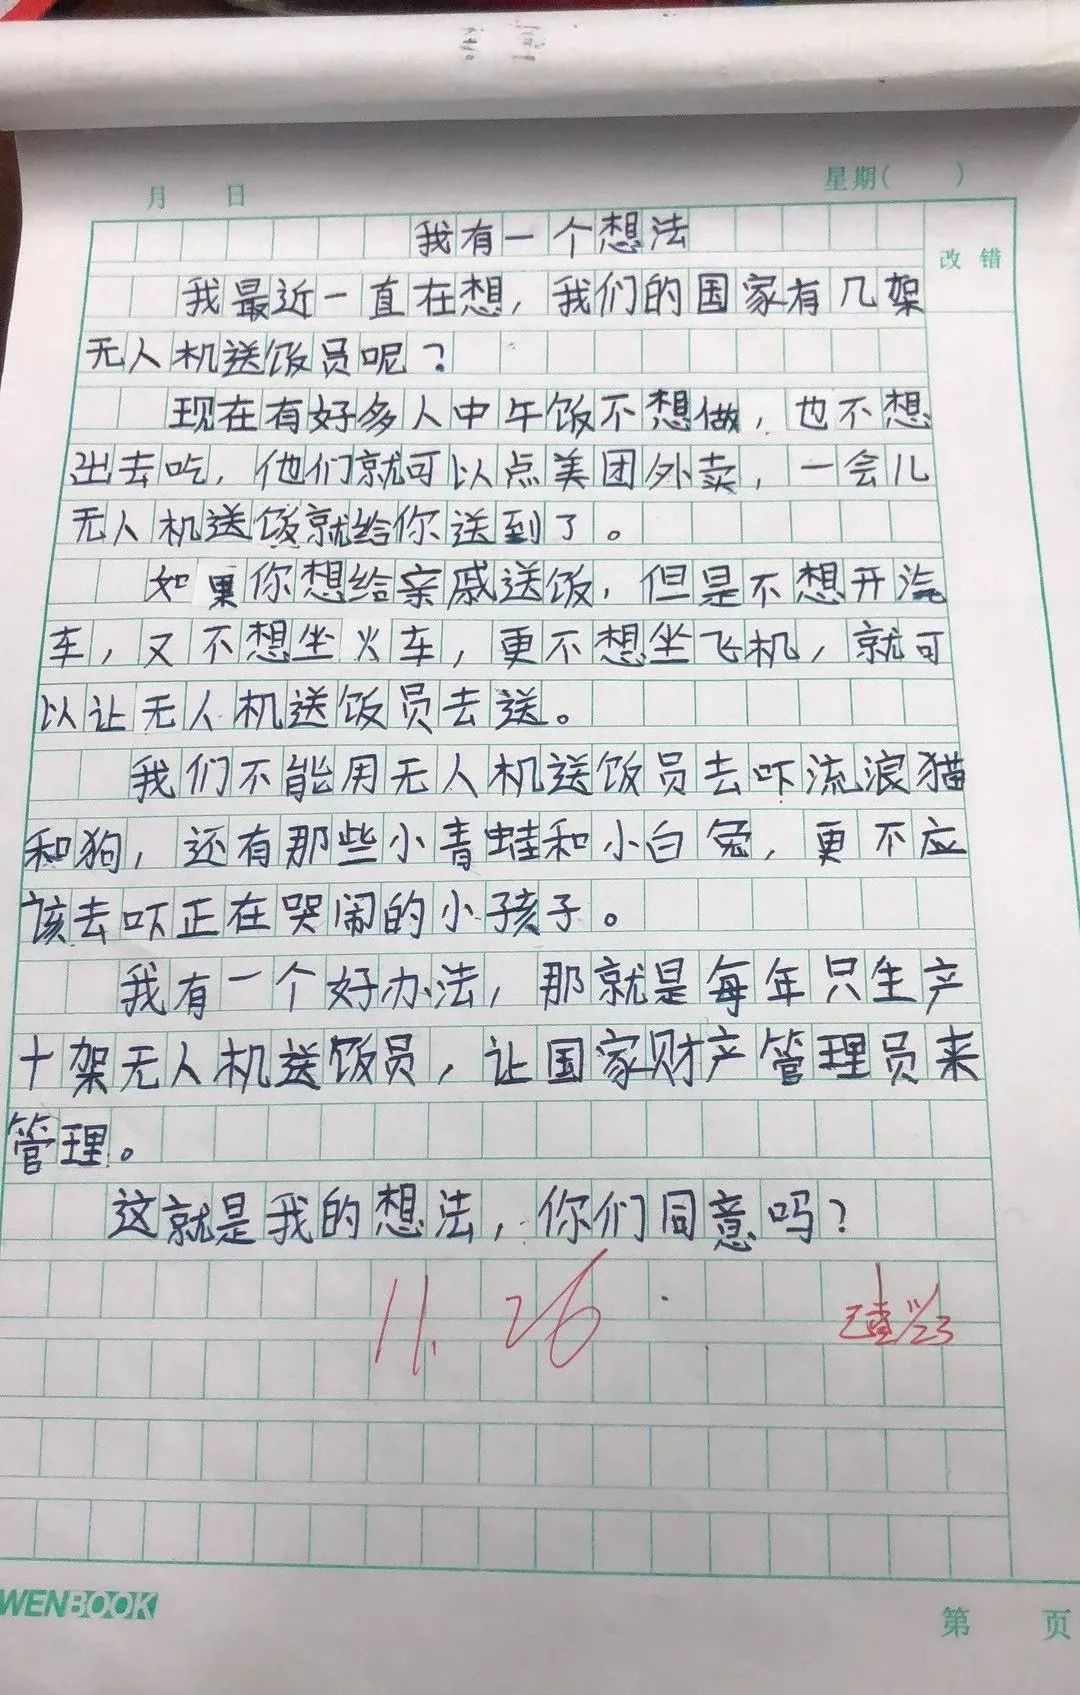 月 日 星期( )
我有一个想法
改错
我最近一直在想，我们的国家有几架
无人机送饭员呢？
现在有好多人中午饭不想做，也不想
出去吃，他们就可以点美团外卖，一会儿
无人机送饭就给你送到了。
如果你想给亲戚送饭，但是不想开汽
车，又不想坐火车，更不想坐飞机，就可
以让无人机送饭员去送。
我们不能用无人机送饭员去吓流浪猫
和狗，还有那些小青蛙和小白兔，更不应
该去吓正在哭闹的小孩子。
我有一个好办法，那就是每年只生产
十架无人机送饭员，让国家财产管理员来
管理。
这就是我的想法，你们同意吗？
11.26
11/23
WENBOOK
第 页